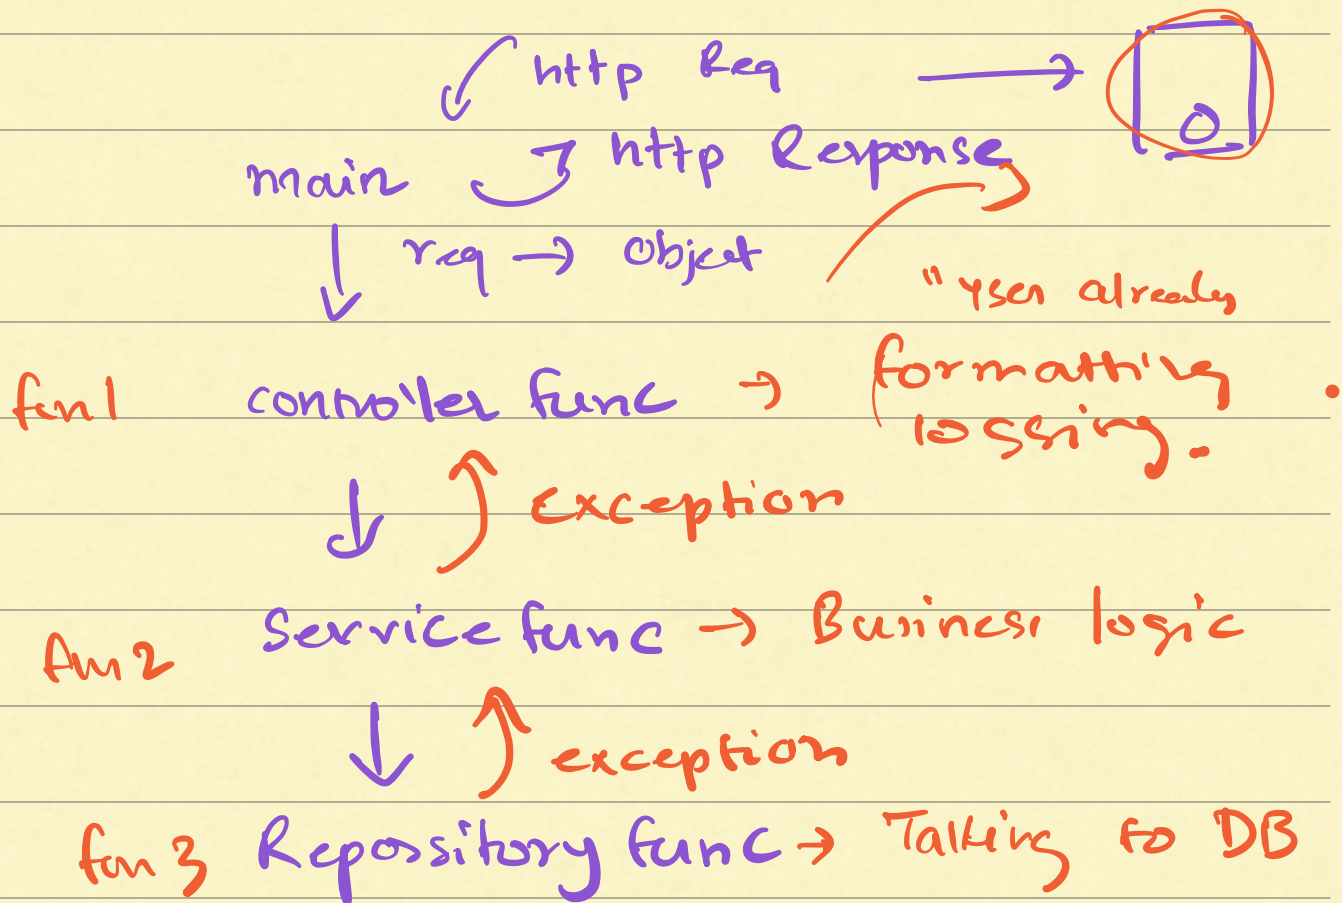 http Req →
main http Response
req → Object
"user already
fcn1 controller func → formatting
logging.
exception
fcn2 Service func → Business logic
exception
fcn3 Repository func → Talking to DB